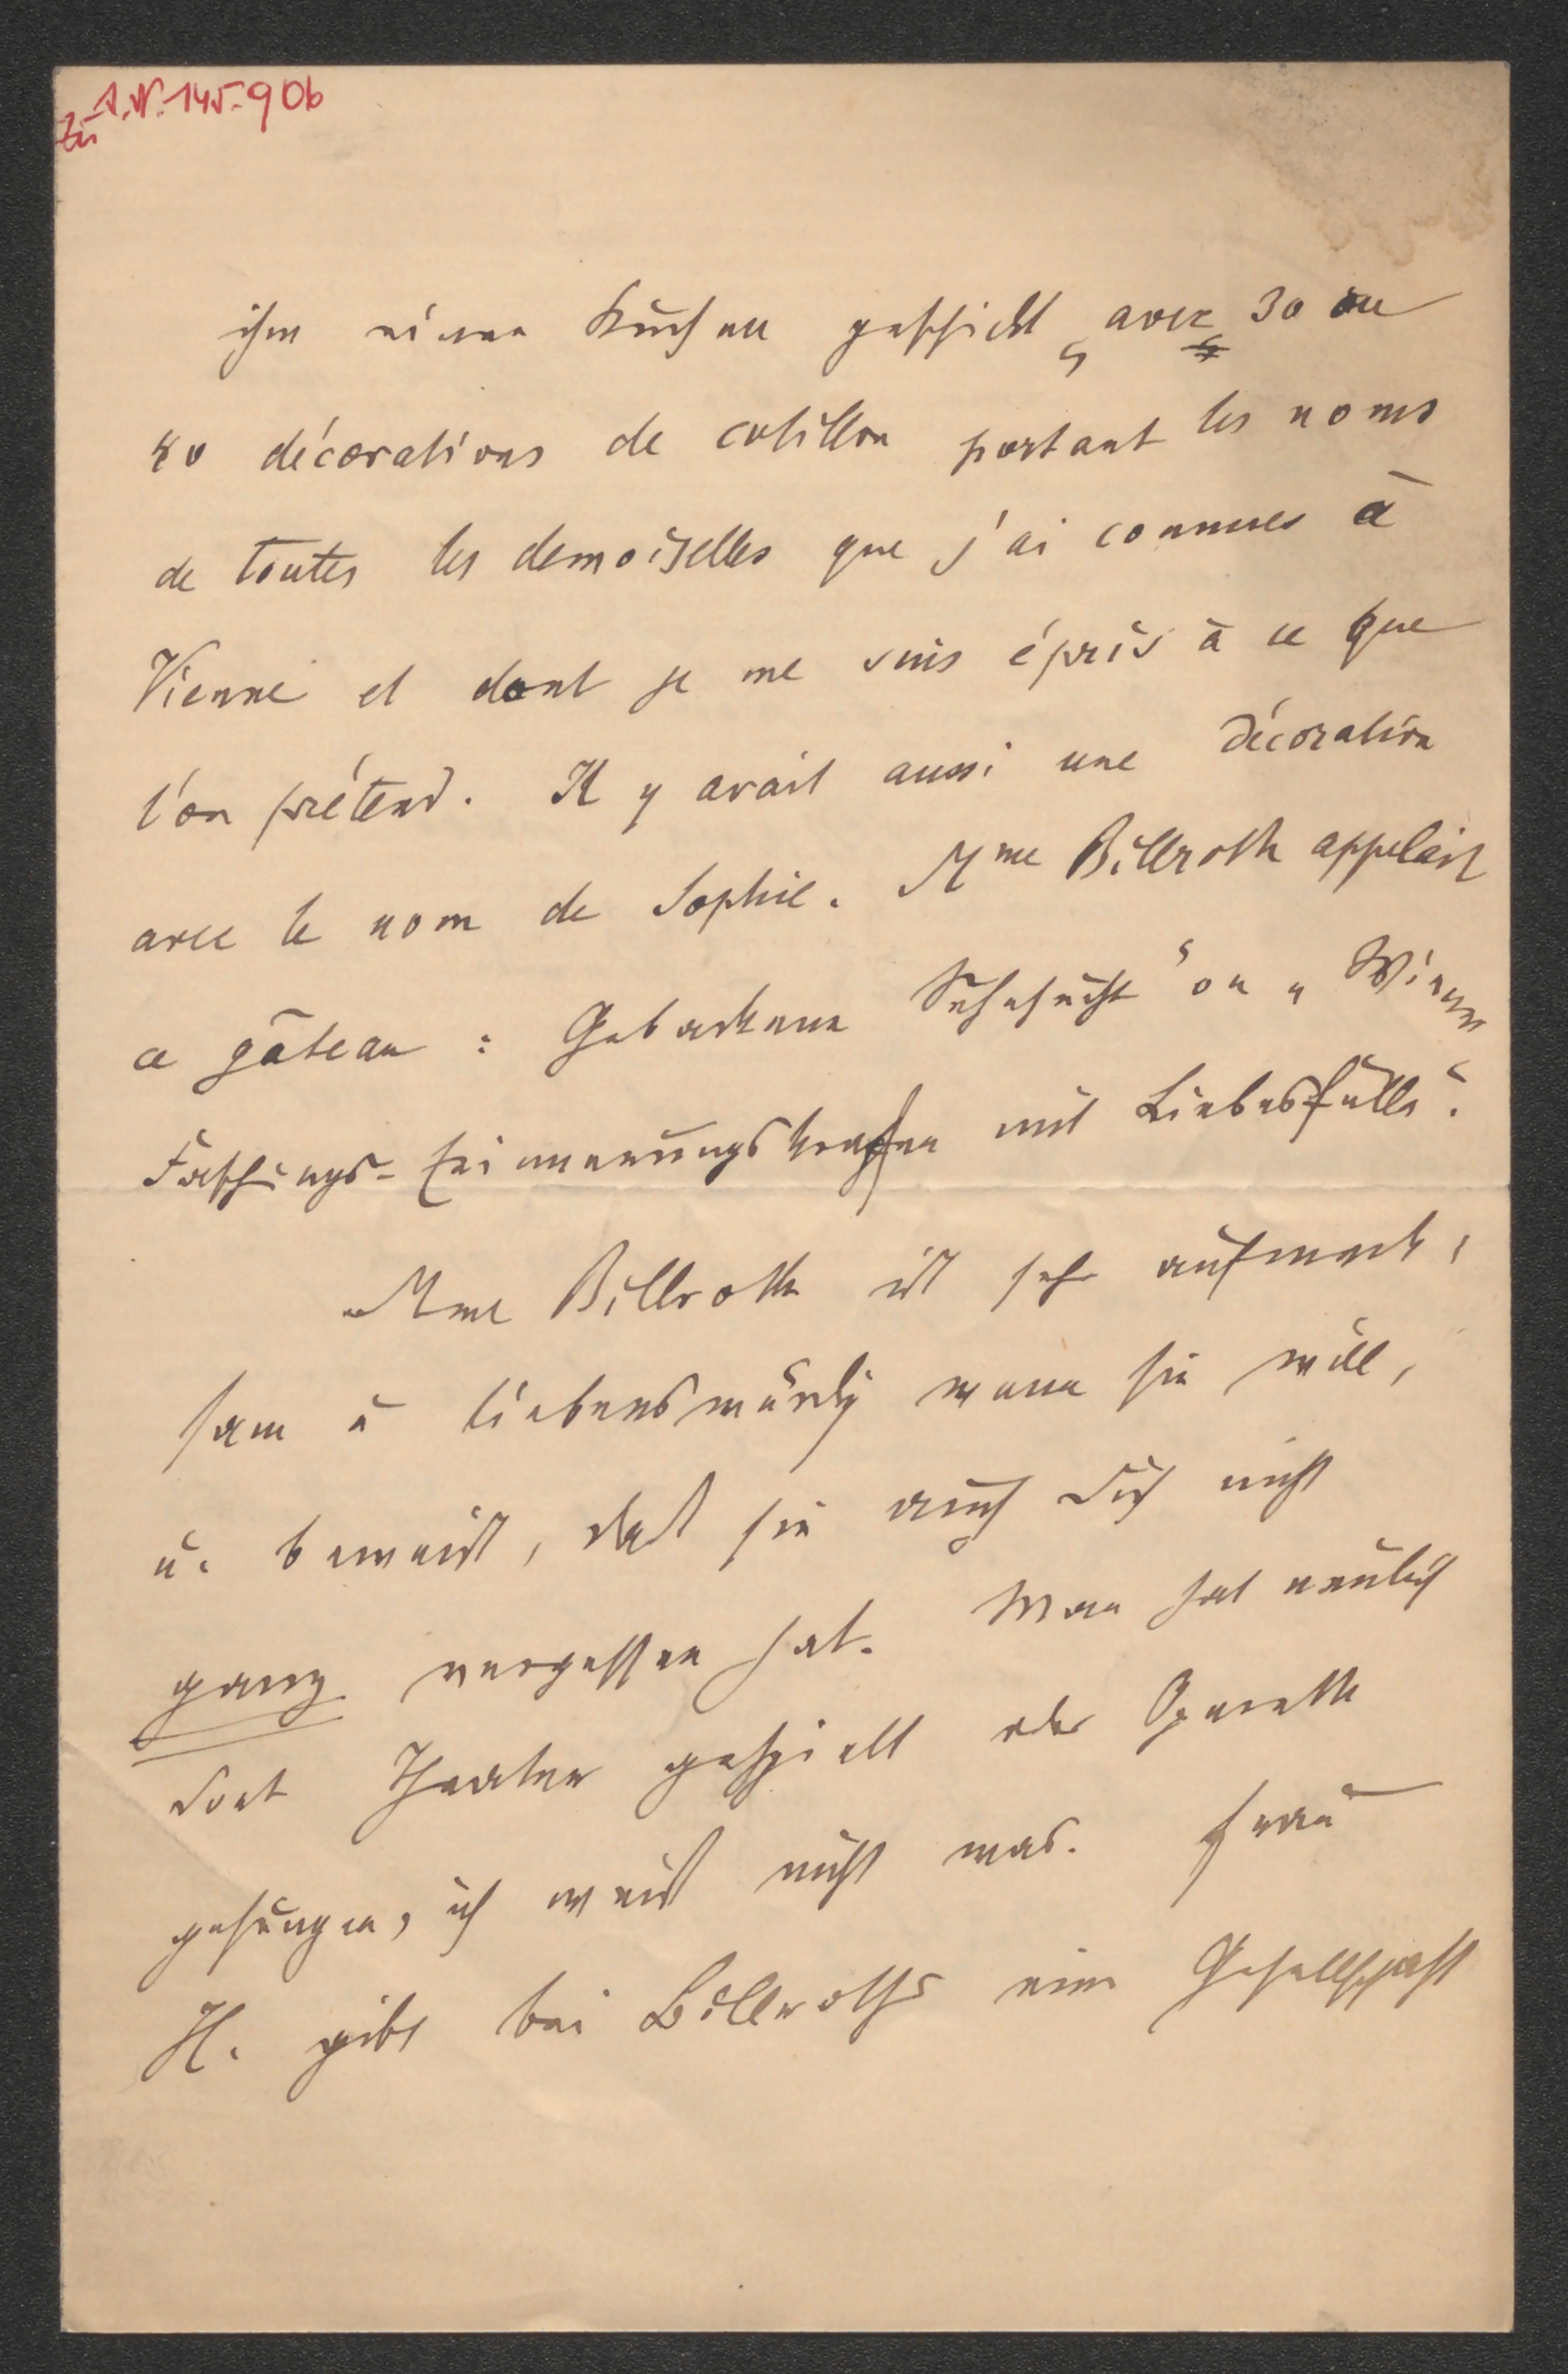 Zu A.N. 145.906
ihm einen Kuchen geschickt „avec 30 ou
40 décorations de cotillon portant les noms
de toutes les demoiselles que j'ai connues à
Vienne et dont je me suis épris à ce que
l'on prétend. Il y avait aussi une décoration
avec le nom de Sophie. Mme Billroth appelait
ce gâteau : Gebackene Sehnsucht“ ou „Wiener
Faschings-Erinnerungskrapfen mit Liebesfülle“.
Mme Billroth ist sehr aufmerk-
sam u liebenswürdig wenn sie will,
u. beweist, daß sie auch Dich nicht
ganz vergessen hat. Man hat neulich
dort Theater gespielt oder Operette
gesungen, ich weiß nicht was. Frau
H. gibt bei Billroths eine Gesellschaft